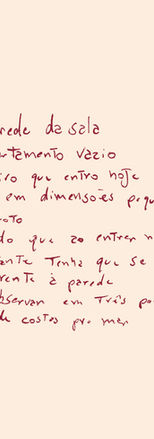 rede da sala
rtamento vazio
ro que entro hoje
em dimensões pequ
oto
do que ao entrar n
ante Tenha que se
rente à parede
bservar em Três po
de costas pro mar